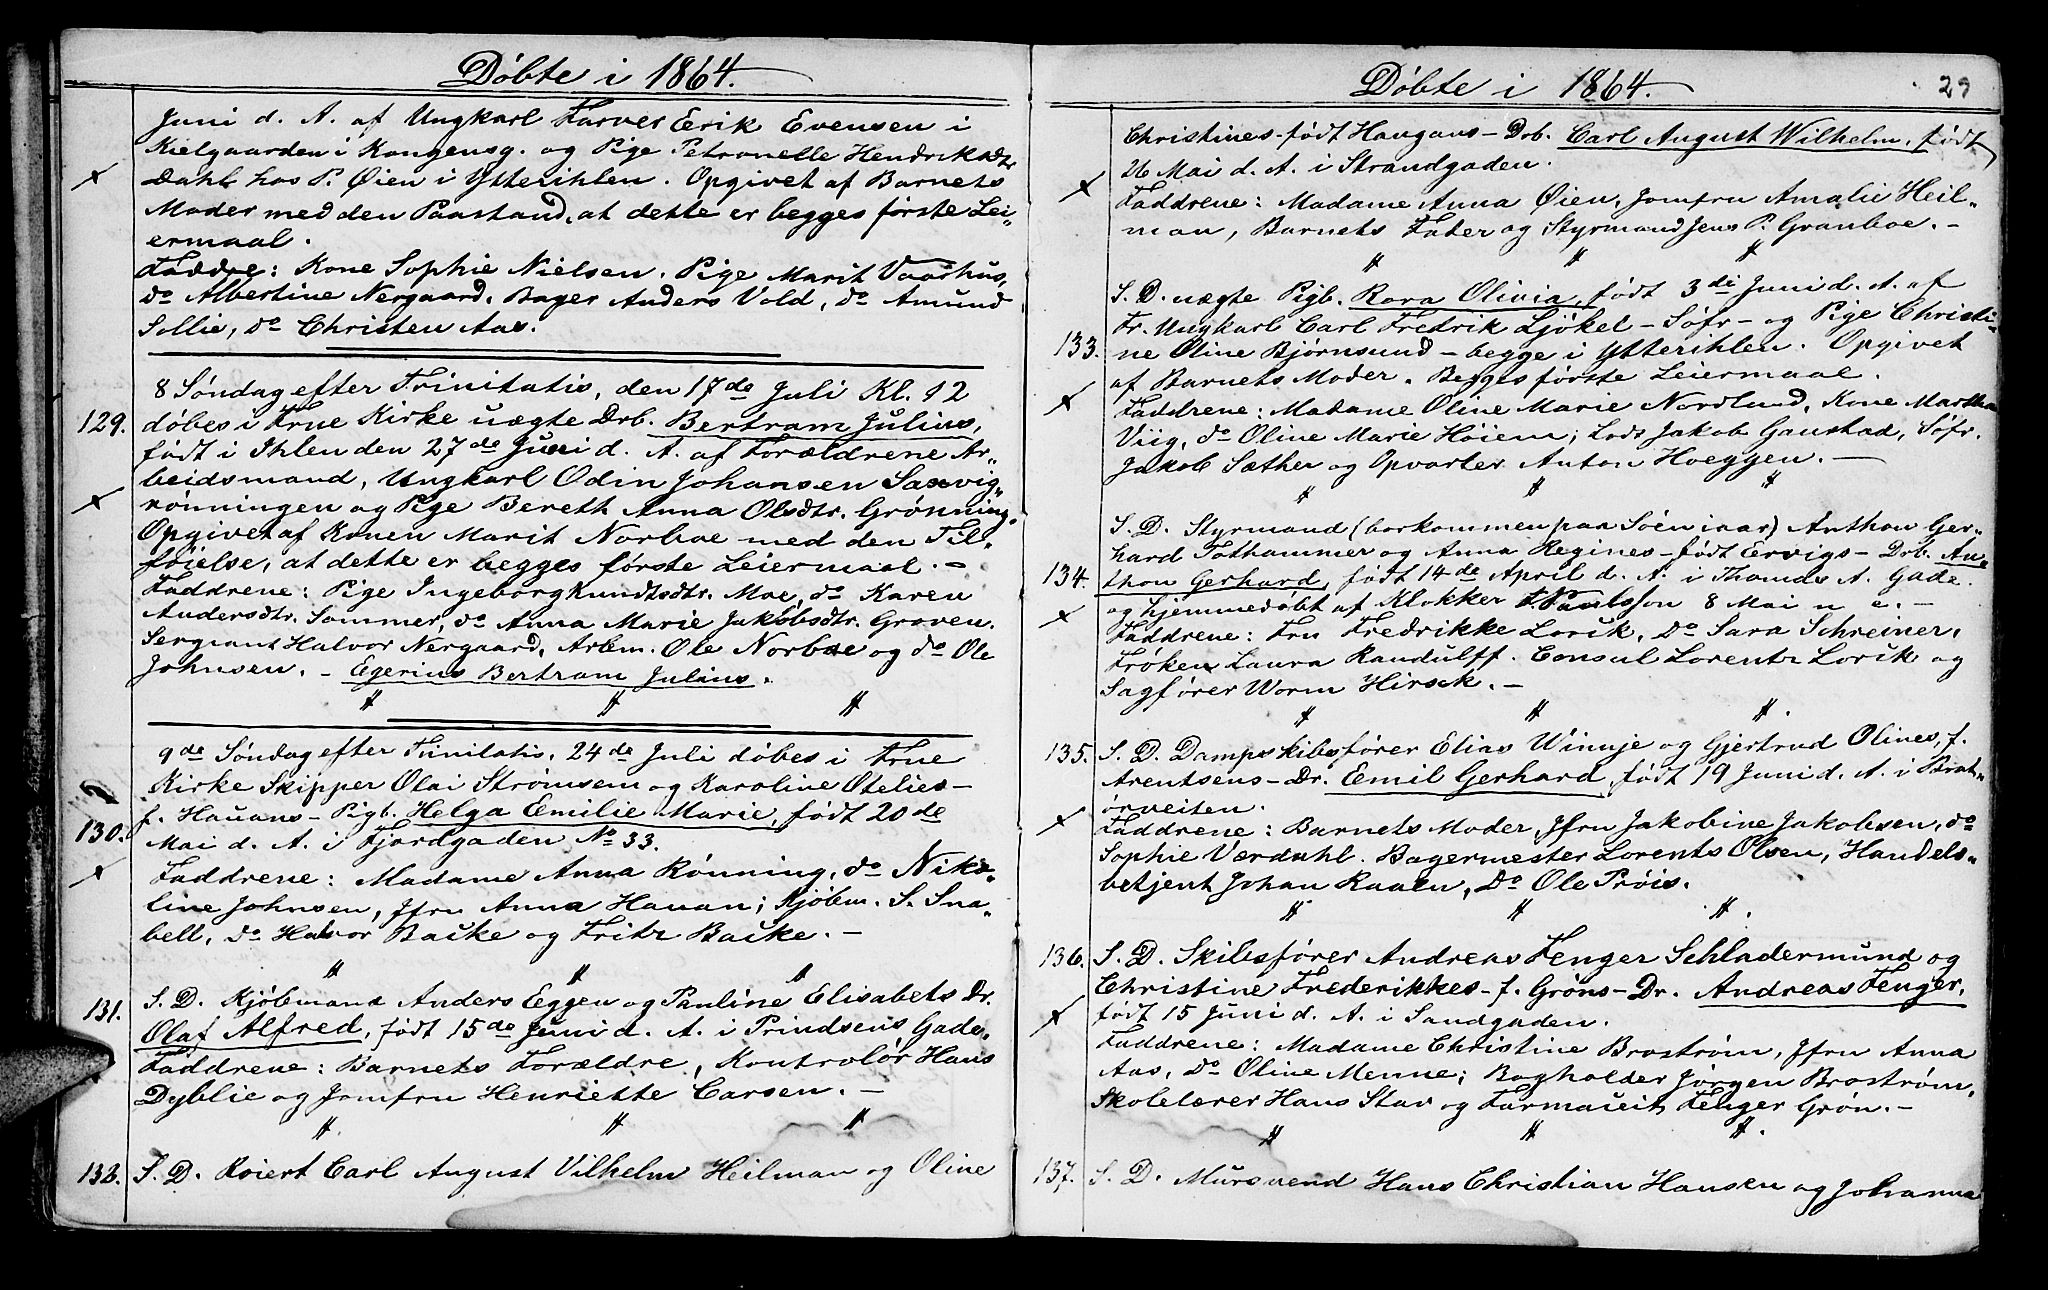 Döbte i 1864.
Juni d. A. af Ungkarl Farver Erik Evensen i
Kielgaarden i Kongensg. og Pige Petronelle Hendriksdtr
Dahl hos P. Øien i Ytterihlen. Opgivet af Barnets
Moder med den Paastand, at dette er begges förste Lei-
ermaal.
Faddre: Kone Sophie Nielsen. Pige Marit Vaarhus,
do Albertine Nergaard. Bager Anders Vold, do Amund
Sollie, do Christen Aas.
8 Söndag efter Trinitatis, den 17de Juli Kl. 12
129. döbes i Frue Kirke uægte Drb. Bertram Julius,
födt i Ihlen den 27de Juni d. A. af Forældrene Ar-
beidsmand, Ungkarl Odin Johansen Saxvig-
rönningen og Pige Bereth Anna Olsdtr. Grönning.
Opgivet af Konen Marit Norboe med den Til-
föielse, at dette er begges förste Leiermaal. -
Faddrene: Pige Ingeborg Knudtsdtr. Moe, do Karen
Andersdtr. Sommer, do Anna Marie Jakobsdtr. Groven.
Sergeant Halvor Nergaard, Arbm. Ole Norboe og do Ole
Johnsen. - Egerius Bertram Julius.
" " "
9de Söndag efter Trinitatis, 24de Juli döbes i Frue
Kirke Skipper Olai Strömsem og Karoline Otelies-
130. f. Hauans- Pigb. Helga Emilie Marie, födt 20de
Mai d. A. i Fjordgaden No 33.
Faddrene: Madame Anna Rönning, do Niko-
line Johnsen, Jfru Anna Hauan; Kjöbm. S. Sna-
bell, do Halvor Backe og Fritz Backe. -
" " "
131. S. D. Kjöbmand Anders Eggen og Pauline Elisabets Dr.
Olaf Alfred, födt 15de Juni d. A. i Prindsens Gade.
Faddrene: Barnets Forældre, Kontrolör Hans
Dyblie og Jomfru Henriette Carsen. -
" " "
132. S. D. Röiert Carl August Vilhelm Heilman og Oline
Döbte i 1864.
29
Christines-födt Haugans- Drb. Carl August Wilhelm, födt
26 Mai d. A. i Strandgaden.
Faddrene: Madame Anna Øien, Jomfru Amalie Heil-
man, Barnets Fader og Styrmand Jens P. Granboe. -
" " "
S. D. uægte Pigb. Rora Olivia, födt 3die Juni d. A. af
133. Fr. Ungkarl Carl Fredrik Ljökel - Söfr- og Pige Christi-
ne Oline Björnsund - begge i Ytterihlen. Opgivet
af Barnets Moder. Begges förste Leiermaal.
Faddrene: Madame Oline Marie Nordlund, Kone Martha
Viig, do Oline Marie Höiem; Lods Jakob Gaustad, Söfr.
Jakob Sæther og Opvarter Anton Hoeggen. -
" " "
S. D. Styrmand (borkommen paa Söen iaar) Anthon Ger-
hard Tothammer og Anna Regines-födt Ervigs- Drb. An-
134. thon Gerhard, födt 14de April d. A. i Thomas A. Gade.
og hjemmedöbt af Klokker Paulsson 8 Mai n e. -
Faddrene: Fru Fredrikke Lorck, do Sara Schreiner,
Fröken Laura Randulff. Consul Lorentz Lorck og
Sagförer Worm Hirsch. -
" " ".
135. S. D. Dampskibsförer Elias Winnje og Gjertrud Olines, f.
Arentsens- Dr. Eemil Gerhard, födt 19 Juni d. A. i Brat-
örveiten.
Faddrene: Barnets Moder, Jfru Jakobine Jakobsen, do
Sophie Værdahl. Bagermester Lorents Olsen, Handels-
betjent Johan Raaen, do Ole Pröis.
" " ".
136. S. D. Skibsförer Andreas Fenger Schladermund og
Christine Frederikkes-f. Gröns- Dr. Andreas Fenger,
födt 15 Juni d. A. i Sandgaden.
Faddrene: Madame Christine Broström, Jfru Anna
Aas, do Oline Menne; Bogholder Jörgen Broström,
Skolelærer Hans Stav og Farmaceit Fenger Grön. -
" " ".
137. S. D. Mursvend Hans Christian Hansen og Johanna